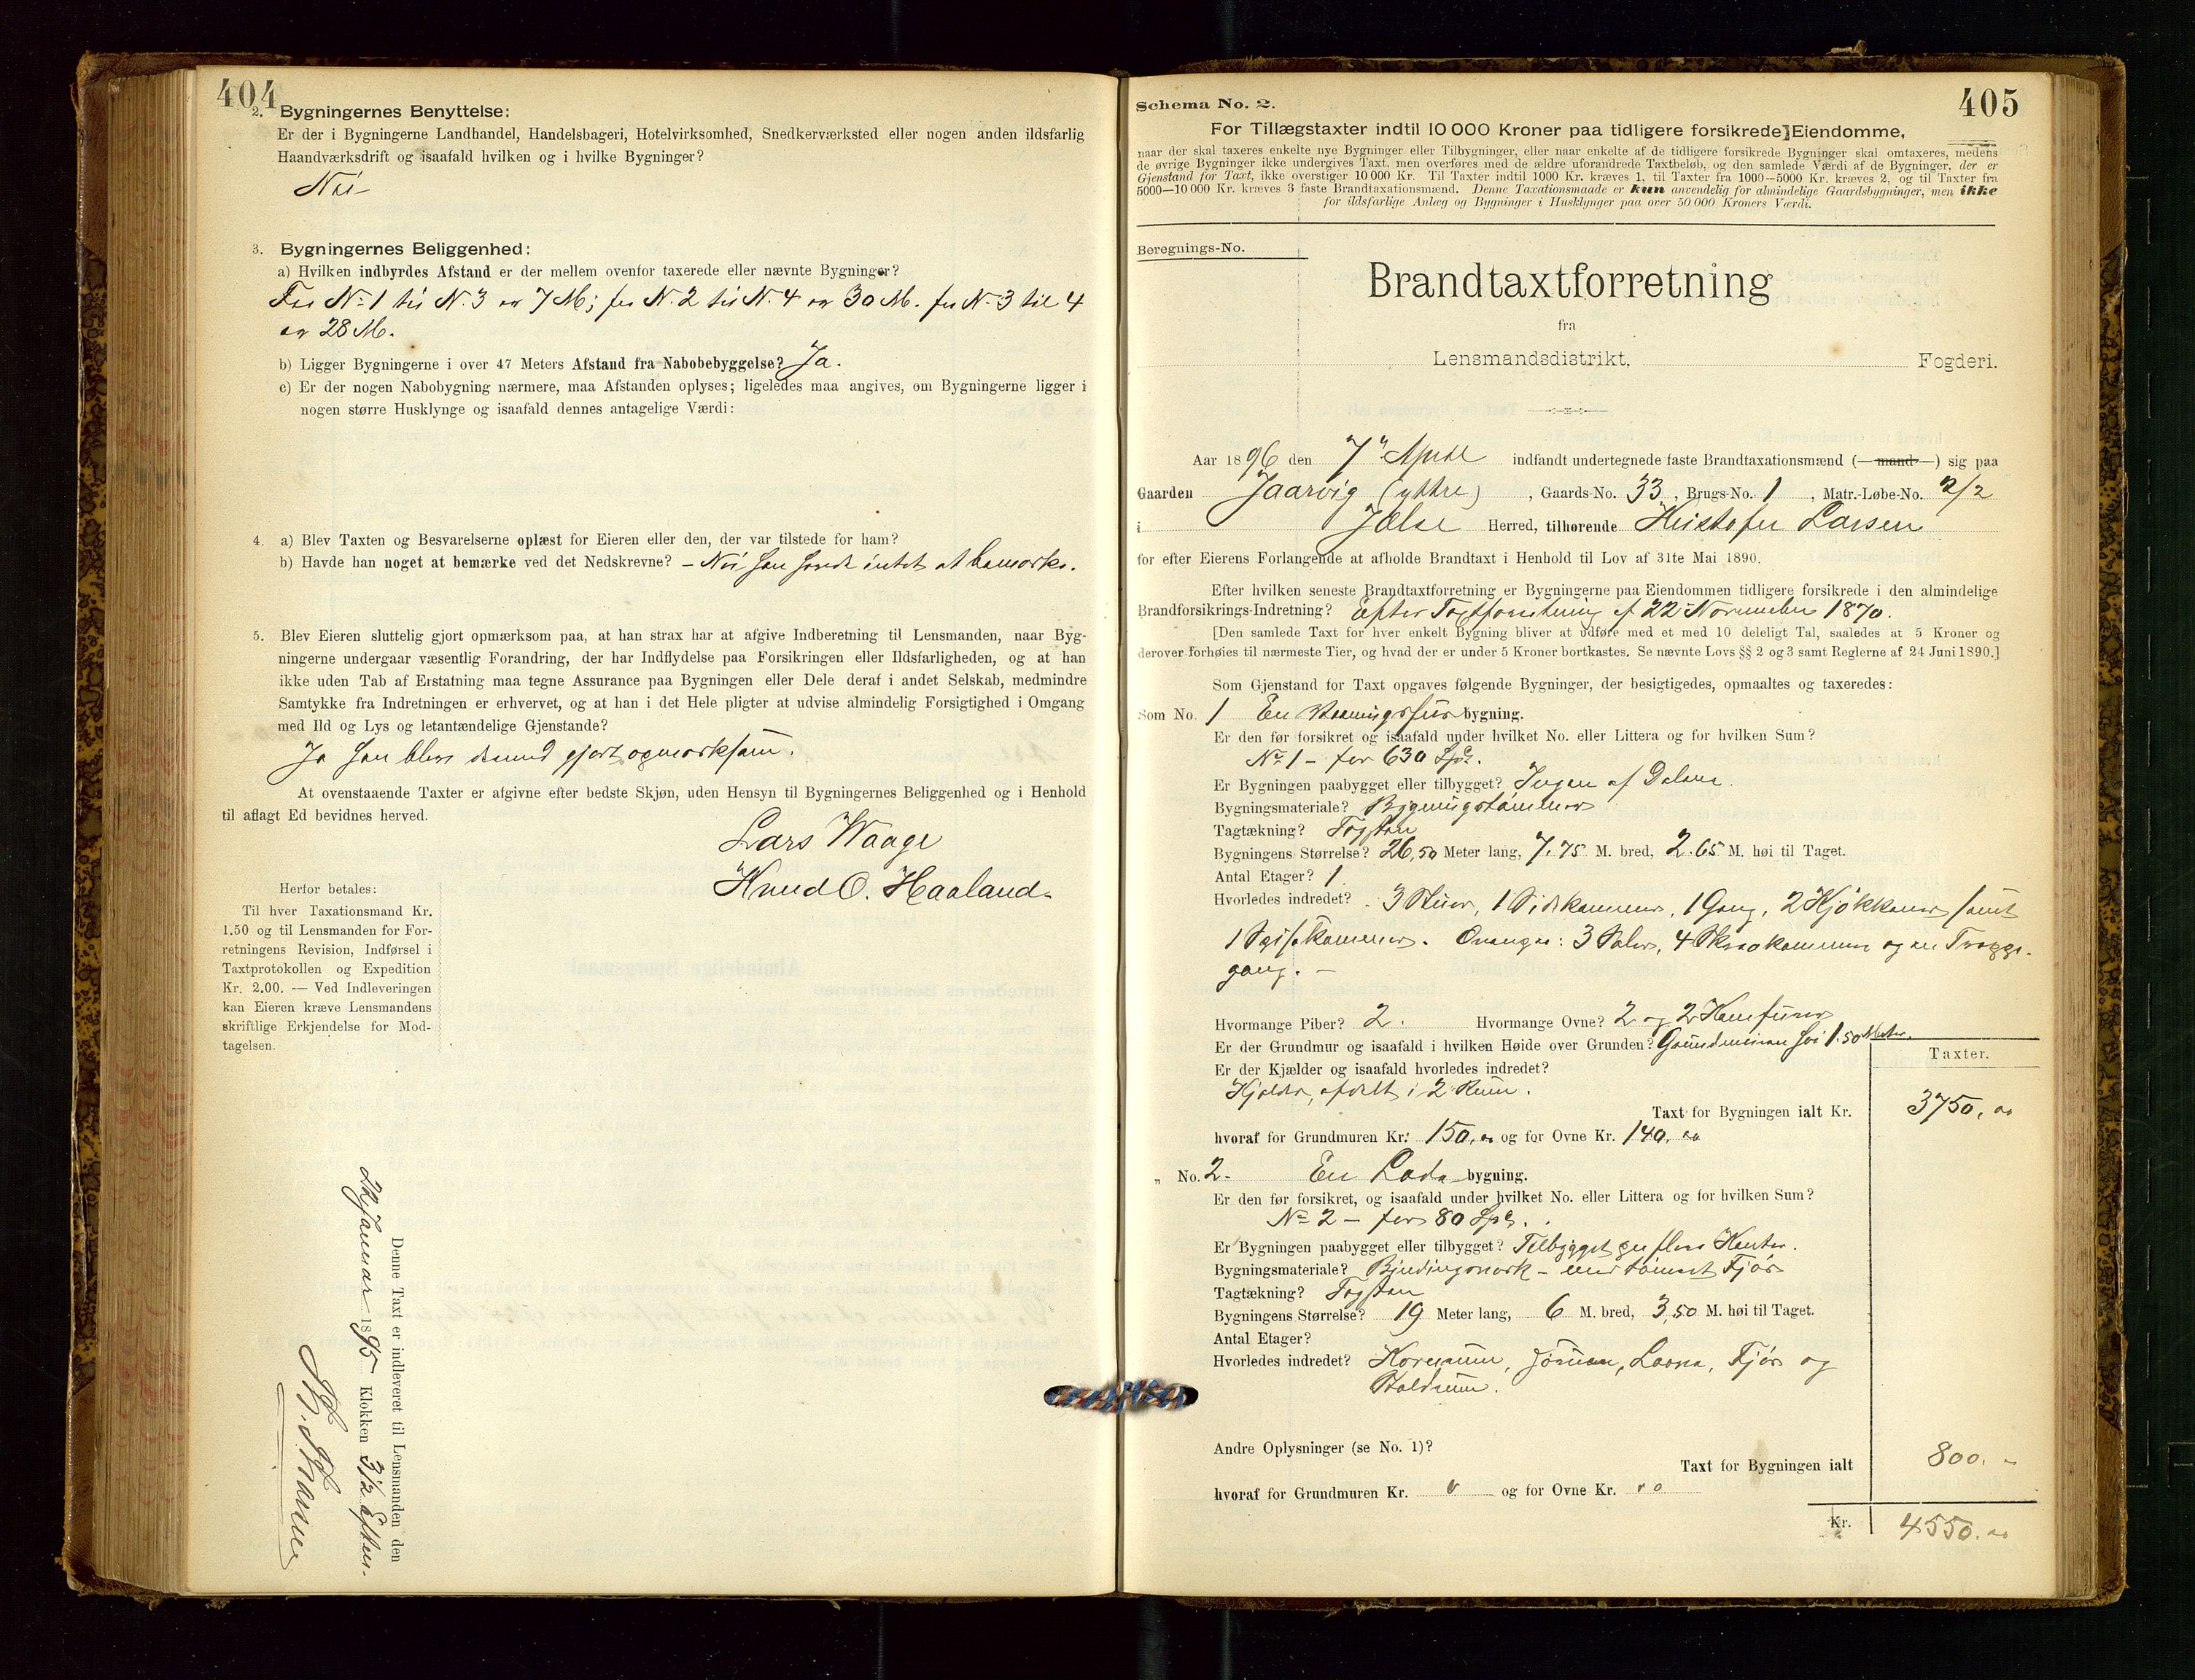 404
2. Bygningernes Benyttelse:
Er der i Bygningerne Landhandel, Handelsbageri, Hotelvirksomhed, Snedkerværksted eller nogen anden ildsfarlig
Haandværksdrift og isaafald hvilken og i hvilke Bygninger?
Nei
3. Bygningernes Beliggenhed:
a) Hvilken indbyrdes Afstand er der mellem ovenfor taxerede eller nævnte Bygninger?
Fra No 1 til No 3 er 7 M; fra No 2 til No 4 er 30 M. fra No 3 til 4
er 28 M.
b) Ligger Bygningerne i over 47 Meters Afstand fra Nabobebyggelse? Ja.
c) Er der nogen Nabobygning nærmere, maa Afstanden oplyses; ligeledes maa angives, om Bygningerne ligger i
nogen større Husklynge og isaafald dennes antagelige Værdi:
4. a) Blev Taxten og Besvarelserne oplæst for Eieren eller den, der var tilstede for ham?
b) Havde han noget at bemærke ved det Nedskrevne? – Nei han havde intet at bemærke.
5. Blev Eieren sluttelig gjort opmærksom paa, at han strax har at afgive Indberetning til Lensmanden, naar Byg-
ningerne undergaar væsentlig Forandring, der har Indflydelse paa Forsikringen eller Ildsfarligheden, og at han
ikke uden Tab af Erstatning maa tegne Assurance paa Bygningen eller Dele deraf i andet Selskab, medmindre
Samtykke fra Indretningen er erhvervet, og at han i det Hele pligter at udvise almindelig Forsigtighed i Omgang
med Ild og Lys og letantændelige Gjenstande?
Ja han blev dermed gjort opmærksom.
At ovenstaaende Taxter er afgivne efter bedste Skjøn, uden Hensyn til Bygningernes Beliggenhed og i Henhold
til aflagt Ed bevidnes herved.
Lars Waage
Knud O. Haaland
Herfor betales:
Til hver Taxationsmand Kr.
1.50 og til Lensmanden for For-
retningens Revision, Indførsel i
Taxtprotokollen og Expedition
Kr. 2.00. — Ved Indleveringen
kan Eieren kræve Lensmandens
skriftlige Erkjendelse for Mod-
tagelsen.
Denne Taxt er indleveret til Lensmanden den
Januar 1895 Klokken 3 1/2 Efterm.
405
Schema No. 2.
For Tillægstaxter indtil 10 000 Kroner paa tidligere forsikrede] Eiendomme,
naar der skal taxeres enkelte nye Bygninger eller Tilbygninger, eller naar enkelte af de tidligere forsikrede Bygninger skal omtaxeres, medens
de øvrige Bygninger ikke undergives Taxt, men overføres med de ældre uforandrede Taxtbeløb, og den samlede Værdi af de Bygninger, der er
Gjenstand for Taxt, ikke overstiger 10 000 Kr. Til Taxter indtil 1000 Kr. kræves 1, til Taxter fra 1000—5000 Kr. kræves 2, og til Taxter fra
5000—10 000 Kr. kræves 3 faste Brandtaxationsmænd. Denne Taxationsmaade er kun anvendelig for almindelige Gaardsbygninger, men ikke
for ildsfarlige Anlæg og Bygninger i Husklynger paa over 50 000 Kroners Værdi.
Beregnings-No.
Brandtaxtforretning
fra
Lensmandsdistrikt, Fogderi.
Aar 1896 den 7de April indfandt undertegnede faste Brandtaxationsmænd (— mand —) sig paa
Gaarden Jaarvig (yttre), Gaards-No. 33, Brugs-No. 1, Matr.-Løbe-No. 2/2
i Jælse Herred, tilhørende Kristofer Larsen
for efter Eierens Forlangende at afholde Brandtaxt i Henhold til Lov af 31te Mai 1890.
Efter hvilken seneste Brandtaxtforretning er Bygningerne paa Eiendommen tidligere forsikrede i den almindelige
Brandforsikrings-Indretning? Efter Taxtforretning af 22 November 1870.
[Den samlede Taxt for hver enkelt Bygning bliver at udføre med et med 10 deleligt Tal, saaledes at 5 Kroner og
derover forhøies til nærmeste Tier, og hvad der er under 5 Kroner bortkastes. Se nævnte Lovs §§ 2 og 3 samt Reglerne af 24 Juni 1890.]
Som Gjenstand for Taxt opgaves følgende Bygninger, der besigtigedes, opmaaltes og taxeredes:
Som No. 1 En Vaaningshus bygning.
Er den før forsikret og isaafald under hvilket No. eller Littera og for hvilken Sum?
No 1 – for 630 Spd.
Er Bygningen paabygget eller tilbygget? Ingen af Delene.
Bygningsmateriale? Bygningstømmer
Tagtækning? Tagsten
Bygningens Størrelse? 26,50 Meter lang, 7.75 M. bred, 2.65 M. høi til Taget.
Antal Etager? 1
Hvorledes indredet? 3 Stuer, 1 Sidekammer, 1 Gang, 2 Kjøkkener samt
1 Spisekammer. Ovenpaa: 3 Saler, 4 Skraakammere og en Trappe-
gang. –
Hvormange Piber? 2. Hvormange Ovne? 2 og 2 Komfurer
Er der Grundmur og isaafald i hvilken Høide over Grunden? Grundmuren høi 1.50 Meter.
Er der Kjælder og isaafald hvorledes indredet?
Kjelder, afdelt i 2 Rum.
Taxter.
Taxt for Bygningen ialt Kr. 3750.00
hvoraf for Grundmuren Kr. 150.00 og for Ovne Kr. 140.00
" No. 2. En Lade bygning.
Er den før forsikret, og isaafald under hvilket No. eller Littera og for hvilken Sum?
No 2 – for 80 Spd.
Er Bygningen paabygget eller tilbygget? Tilbygget paa flere Kanter.
Bygningsmateriale? Bindingsverk – med tømret Fjøs
Tagtækning? Tagsten
Bygningens Størrelse? 19 Meter lang, 6 M. bred, 3,50 M. høi til Taget.
Antal Etager?
Hvorledes indredet? Kornrum, Laave, Fjøs og
Staldrum.
Andre Oplysninger (se No. 1)?
Taxt for Bygningen ialt 800. –
hvoraf for Grundmuren Kr. 0 og for Ovne Kr. 0
Kr. 4550.00